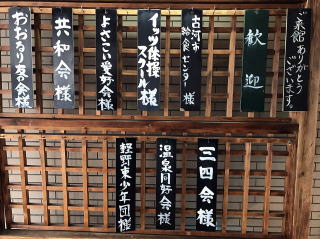 ご来館ありがとう
ございます。
歓迎
古河市
給食センター様
イッツ体操
スクール様
よさこい愛好会様
共和会様
おおるり友の会様
三四会様
温泉同好会様
軽野東少年団様